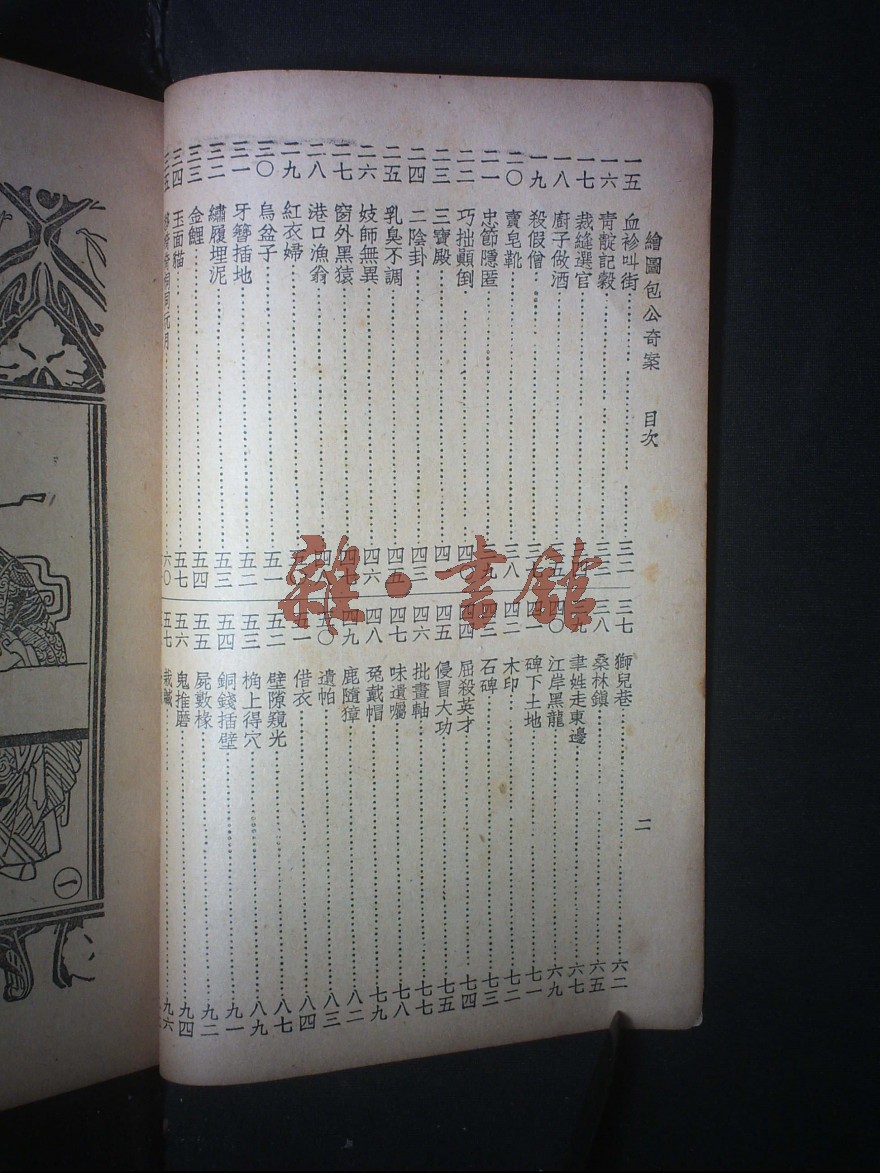 繪圖包公奇案 目次 二
一五 血衫叫街 三二
一六 青靛記穀 三三
一七 裁縫選官 三四
一八 廚子做酒 三五
一九 殺假僧 三七
二〇 賣皂靴 三八
二一 忠節隱匿 三九
二二 巧拙顛倒
二三 三寶殿
二四 二陰卦 四三
二五 乳臭不調 四五
二六 妓師無異 四六
二七 窗外黑猿 四七
二八 港口漁翁 四八
二九 紅衣婦
三〇 烏盆子 五一
三一 牙簪插地 五二
三二 繡履埋泥 五三
三三 金鯉 五四
三四 玉面貓 五七
三五 桐同玩月 六〇
三七 獅兒巷 六二
三八 桑林鎮 六五
三九 聿姓走東邊 六七
四〇 江岸黑龍 六九
四一 碑下土地 七一
四二 木印 七二
四三 石碑 七三
四四 屈殺英才 七四
四五 侵冒大功 七五
四六 批畫軸 七七
四七 味遺囑 七八
四八 兔戴帽 七九
四九 鹿隨獐 八二
五〇 遺帕 八三
五一 借衣 八四
五二 壁隙窺光 八七
五三 桷上得穴 八九
五四 銅錢插壁 九一
五五 屍數椽 九二
五六 鬼推磨 九四
五七 栽贓 九六
雜·書館
一